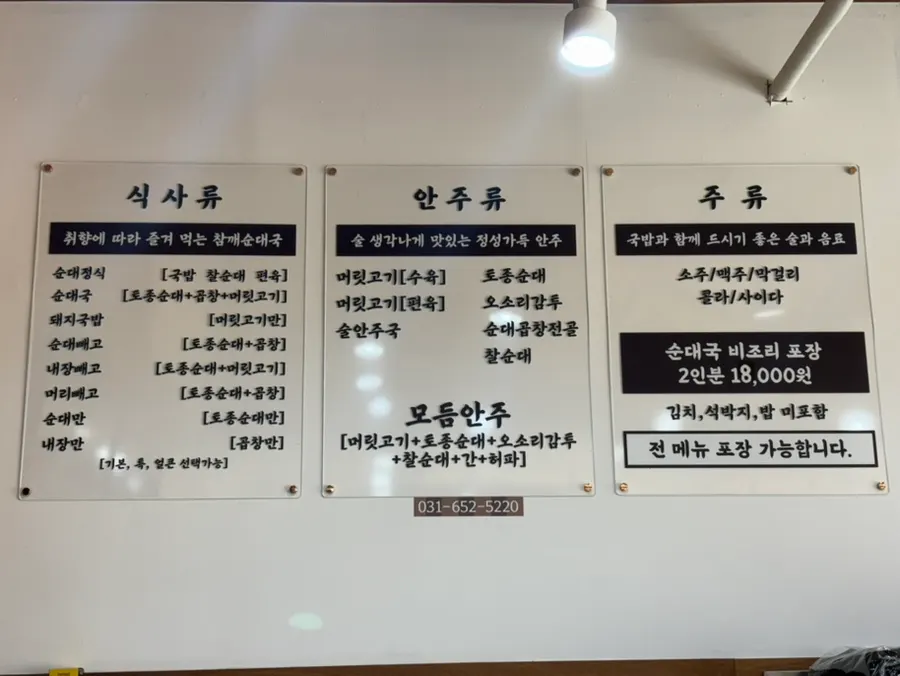 식사류
취향에 따라 즐겨 먹는 참깨순대국
순대정식 [국밥 찰순대 편육]
순대국 [토종순대+곱창+머릿고기]
돼지국밥 [머릿고기만]
순대빼고 [토종순대+곱창]
내장빼고 [토종순대+머릿고기]
머리빼고 [토종순대+곱창]
순대만 [토종순대만]
내장만 [곱창만]
[기본, 특, 얼큰 선택가능]
안주류
술 생각나게 맛있는 정성가득 안주
머릿고기[수육] 토종순대
머릿고기[편육] 오소리감투
술안주국 순대곱창전골
찰순대
모듬안주
[머릿고기+토종순대+오소리감투
+찰순대+간+허파]
031-652-5220
주류
국밥과 함께 드시기 좋은 술과 음료
소주/맥주/막걸리
콜라/사이다
순대국 비조리 포장
2인분 18,000원
김치,석박지,밥 미포함
전 메뉴 포장 가능합니다.